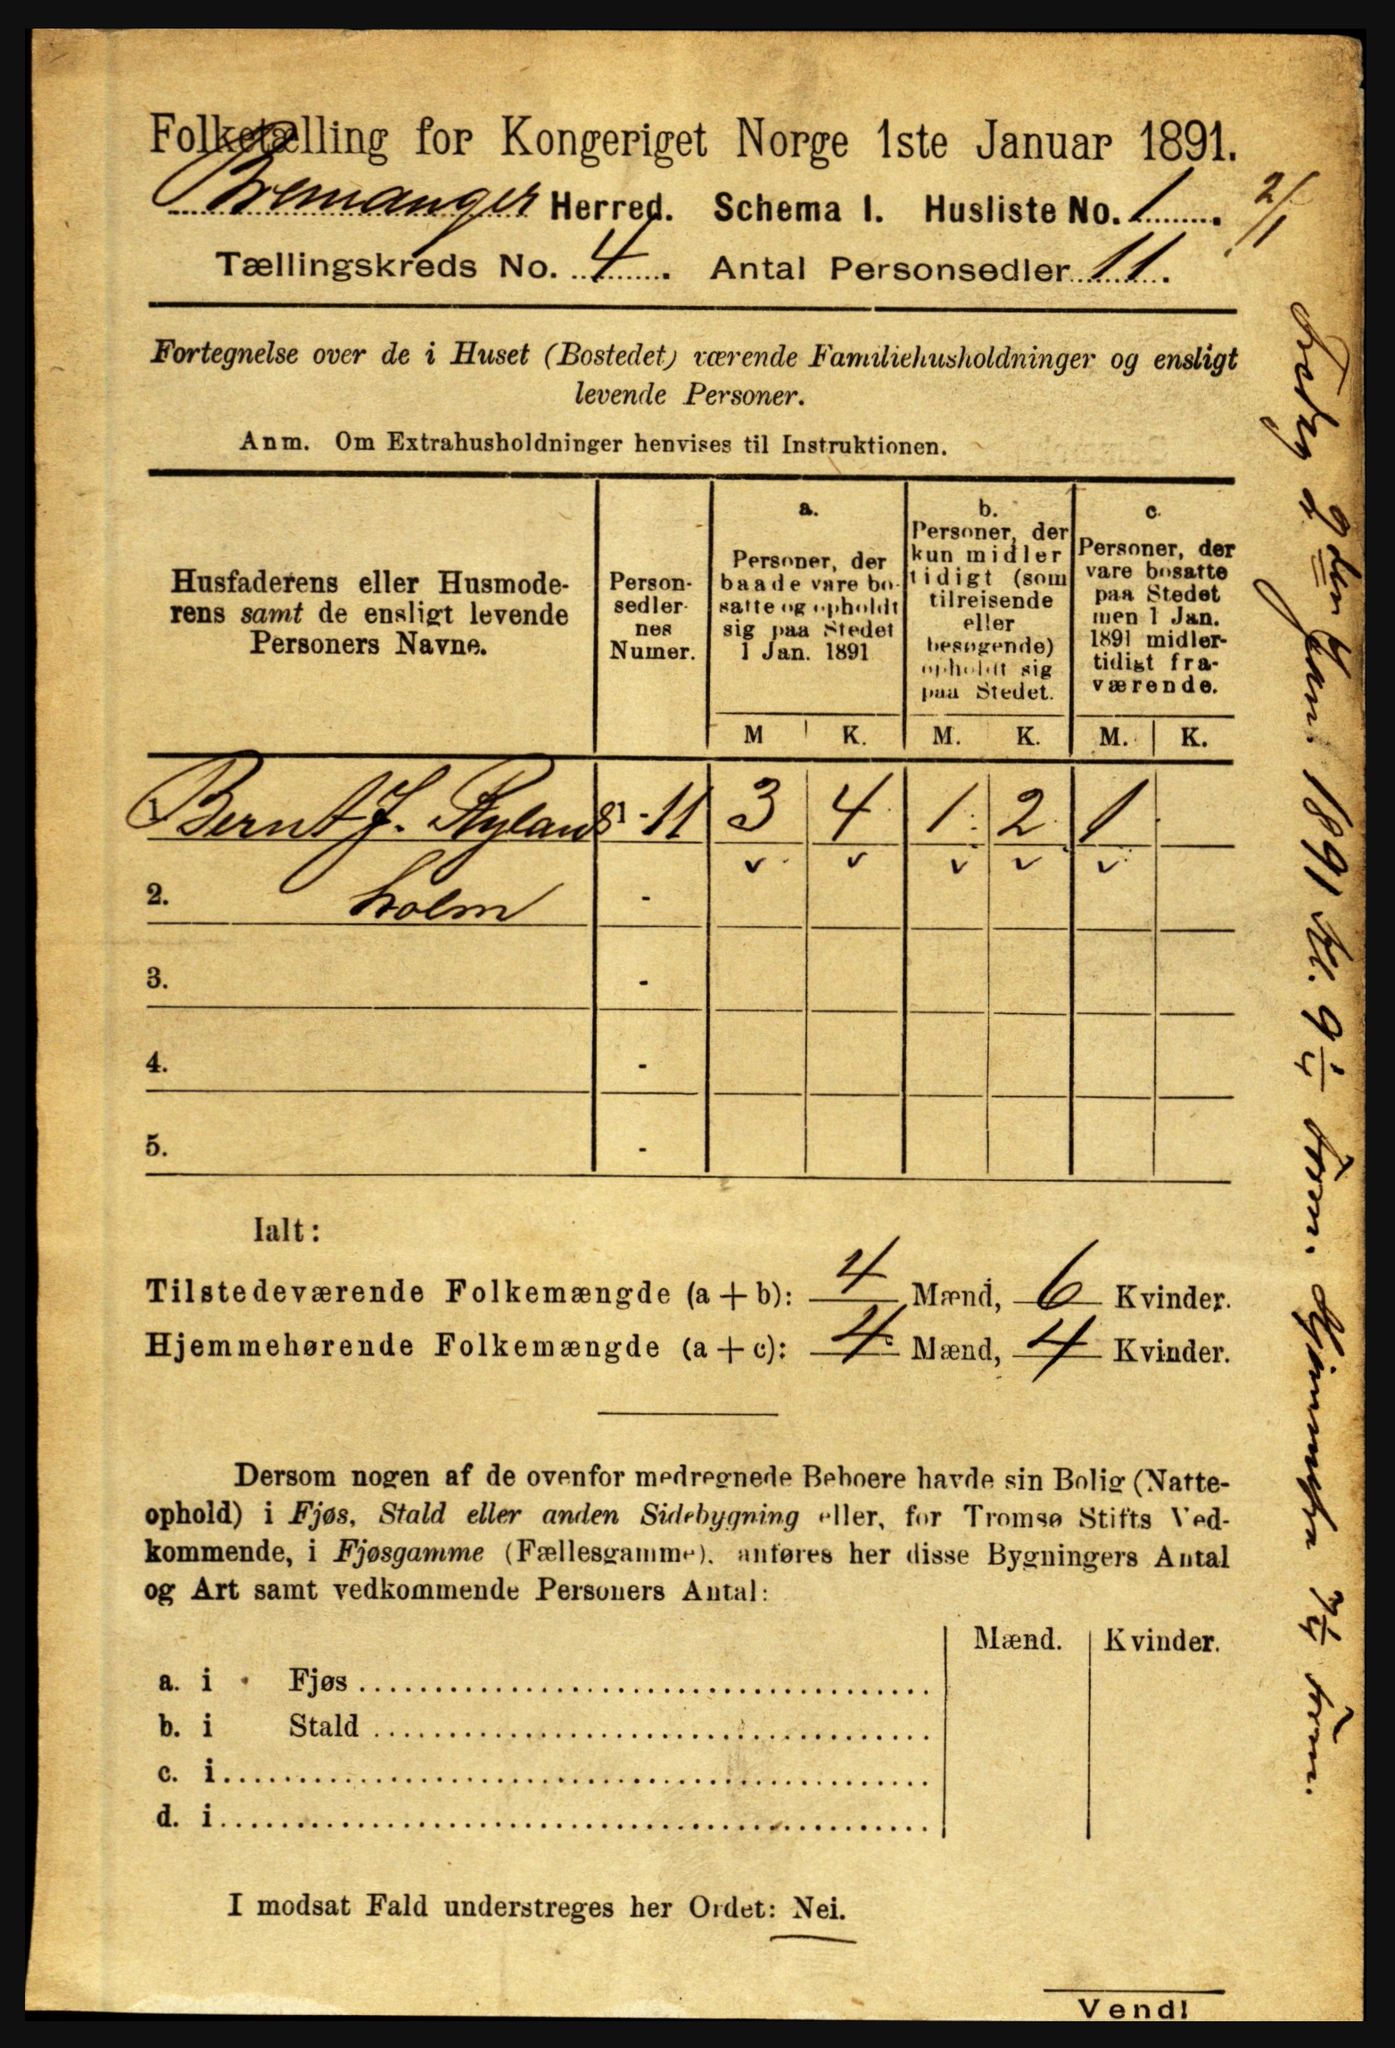 Folketælling for Kongeriget Norge 1ste Januar 1891.
Bremanger Herred. Schema I. Husliste No. 1.
2/1
Tællingskreds No. 4. Antal Personsedler 11.
Fortegnelse over de i Huset (Bostedet) værende Familiehusholdninger og ensligt
levende Personer.
Anm. Om Extrahusholdninger henvises til Instruktionen.
Husfaderens eller Husmode-
rens samt de ensligt levende
Personers Navne.
Person-
sedler-
nes
Numer.
a.
Personer, der
baade vare bo-
satte og opholdt
sig paa Stedet
1 Jan. 1891
b.
Personer, der
kun midler
tidigt (som
tilreisende
eller
besøgende)
opholdt sig
paa Stedet.
c.
Personer, der
vare bosatte
paa Stedet
men 1 Jan.
1891 midler-
tidigt fra-
værende.
M K. M. K. M. K.
1. Bernt J. Rylands 1 - 11 3 4 1 2 1
2. holm -
3. -
4. -
5. -
Ialt:
Tilstedeværende Folkemængde (a + b): 4 Mænd, 6 Kvinder.
Hjemmehørende Folkemængde (a + c): 4 Mænd, 4 Kvinder.
Dersom nogen af de ovenfor medregnede Beboere havde sin Bolig (Natte-
ophold) i Fjøs, Stald eller anden Sidebygning eller, for Tromsø Stifts Ved-
kommende, i Fjøsgamme (Fællesgamme), anføres her disse Bygningers Antal
og Art samt vedkommende Personers Antal:
Mænd. Kvinder.
a. i Fjøs
b. i Stald
c. i
d. i
I modsat Fald understreges her Ordet: Nei.
Vend!
2den Jan. 1891 kl. 9 1/4 Form. Hjemmefra 7 1/4 Form.